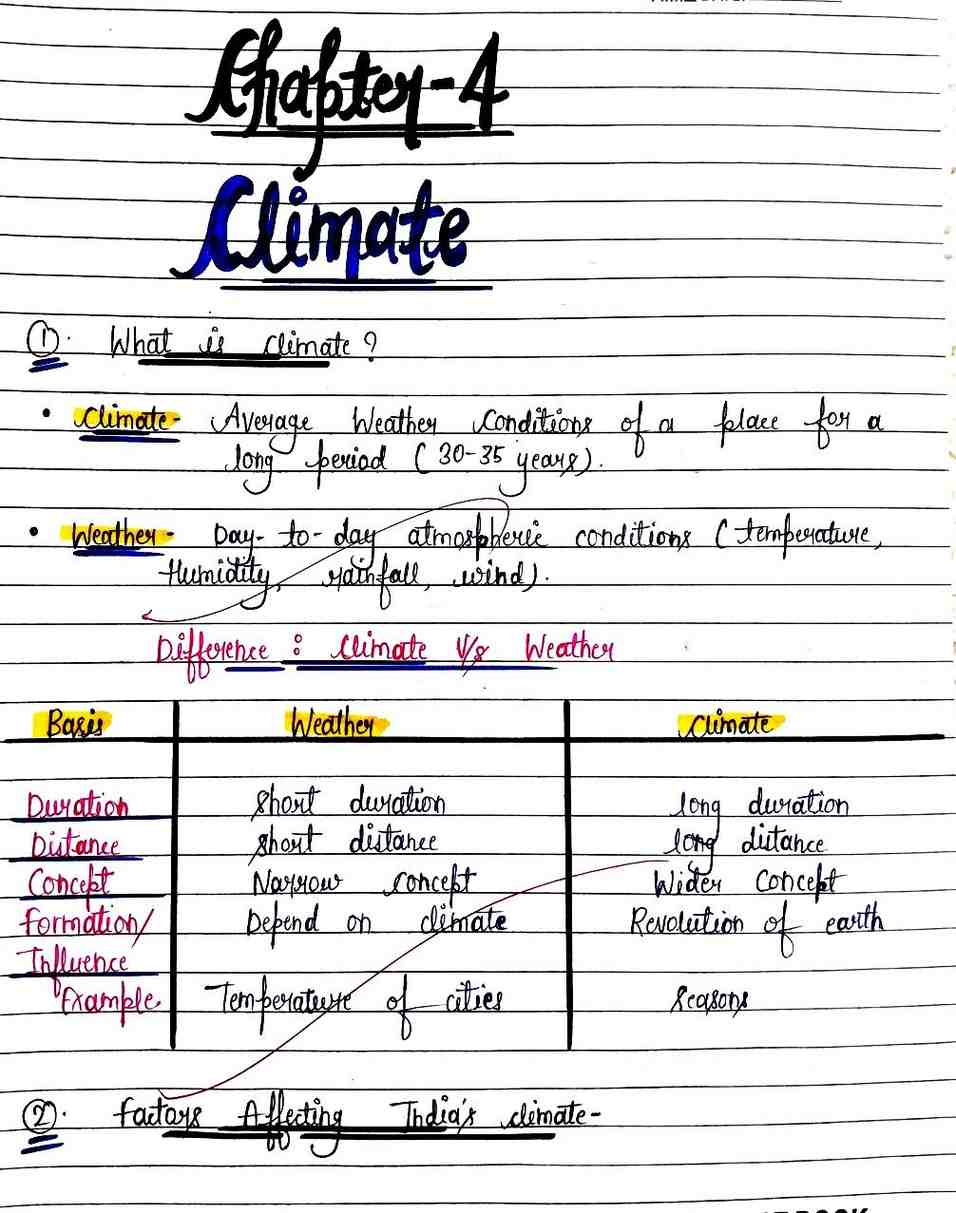 Chapter-4
Climate
①. What is climate?
• Climate- Average Weather Conditions of a place for a
long period (30-35 years).
• Weather- Day-to-day atmospheric conditions (temperature,
Humidity, rainfall, wind).
Difference : Climate V/s Weather
Basis Weather Climate
Duration short duration long duration
Distance short distance long distance
Concept Narrow concept Wider Concept
Formation/ Depend on climate Revolution of earth
Influence
Example Temperature of cities seasons
②. Factors Affecting India's climate-